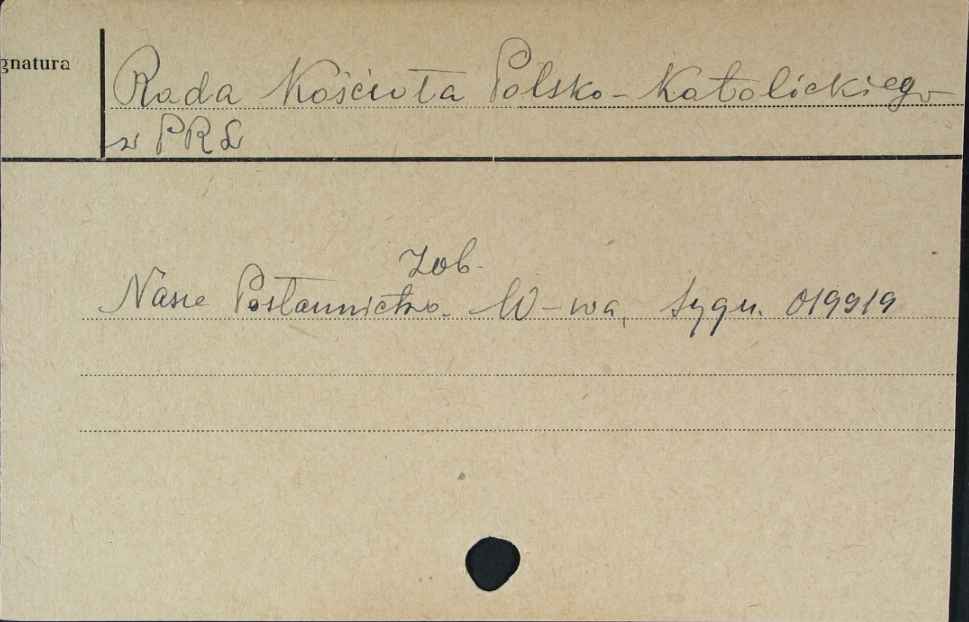 gnatura
Rada Kościoła Polsko-Katolickiego
w PRL
Zob.
Nasze Posłannictwo. W-wa, Sygn. 019919